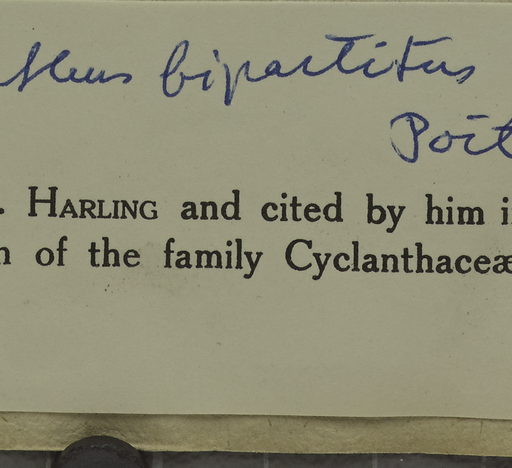 thus bipartitus
Poit
. HARLING and cited by him i
n of the family Cyclanthaceæ